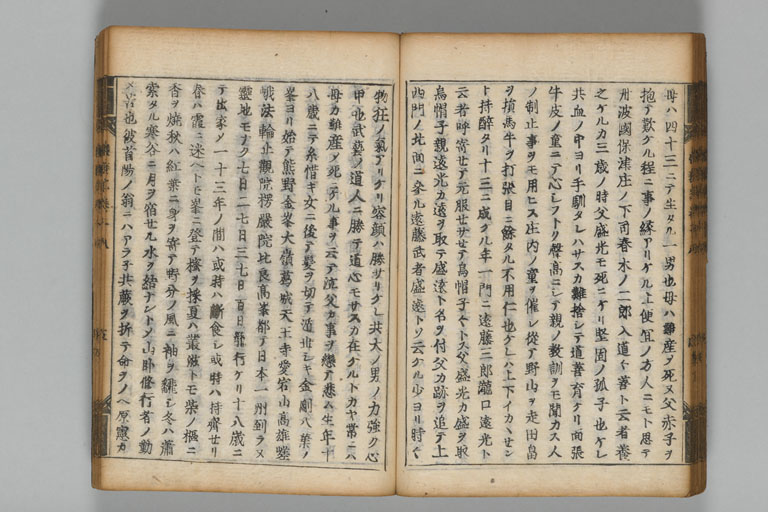 母ハ四十三ニテ生タル一男也母ハ難産ヲ死ス父赤子ヲ
抱テ歎クル程ニ事ノ縁アリケル上便冝ノ方人ニモト思テ
丹波國保津庄ノ下司春木ノ二郎入道ゝ善ト云者養
之ケルカ三歳ノ時父盛光モ死ニケリ堅固ノ孤子也ケレ
共血ノ中ヨリ手馴タレハサスカ難捨シテ道善育ケリ面張
牛皮ノ童ニテ心シフトク聲高ニシテ親ノ教訓ヲモ聞カス人
ノ制止事ヲモ用ヒス庄内ノ童ヲ催シ從ア野山ヲ走田畠
ヲ損馬牛ヲ打張目ニ餘タル不用仁也ケレハ上下イカヽセン
ト持醉タリ十三ニ成ケル年一門ニ遠藤三郎瀧口遠光ト
云者呼寄セテ元服セサセテ烏帽子ヤトス父盛光カ盛ヲ取
烏帽子親遠光カ遠ヲ取テ盛遠ト名ヲ付父カ跡ヲ追テ上
西門ノ北面ニ參ル遠藤武者盛遠トソ云ケル少ヨリ時〻
物狂ノ氣アリケリ容顔ハ勝サリケレ共大ノ男ノ力強ク心
甲也武藝ノ道人ニ勝テ道心モサスカ在ケルトカヤ常ニハ
母カ難産メ死ニケル事ヲ云テ泣父カ事ヲ戀テ悲ム生年十
八歳ニテ糸惜キ女ニ後テ髪ヲ切テ
峯ヨリ始テ熊野金峯大嶺葛城天王寺愛宕山高雄鑒
戒法輪止觀院楞嚴院比良高峯都テ日本一州到ラヌ
靈地モナク七日二七日三七日百日籠行ケリ十八歳ニ
テ出家メ一十三年ノ間ハ或時ハ斷食シ或時ハ持齋セリ
春ハ霞ニ迷ヘトモ峯ニ登テ樒ヲ採夏ハ叢茂トモ柴ノ樞ニ
香ヲ燒秋ハ紅葉ニ身ヲ寄テ野分ノ風ニ袖ヲ飜シ冬ハ蕭
索タル寒谷ニ月ヲ宿セル水ヲ結ナントメ山臥修行者ノ勤
苦也彼首陽ノ翁ニハアラ子共蕨ヲ折テ命ヲノヘ原憲カ